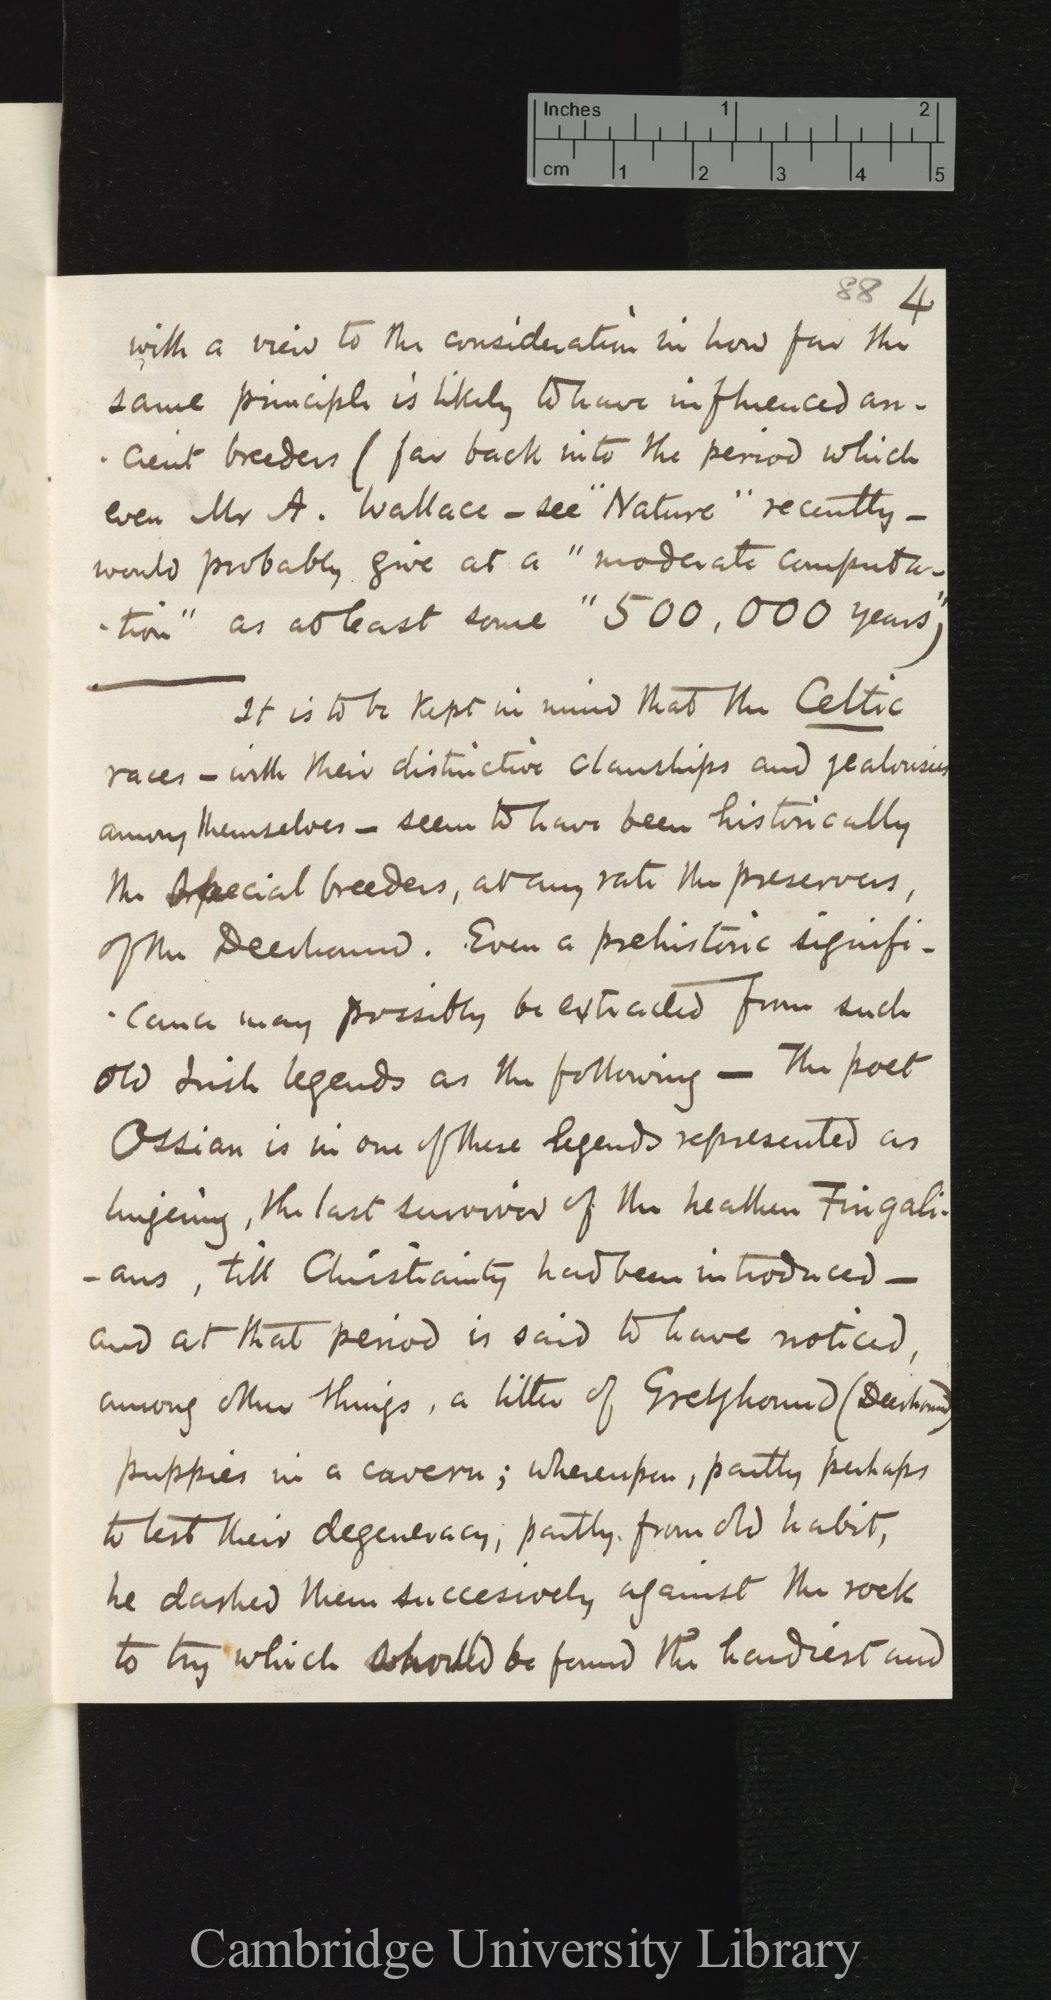 Inches 1 2
cm 1 2 3 4 5
88 4
with a view to the consideration in how far the
same principle is likely to have influenced an-
-cient breeders (far back into the period which
even Mr A. Wallace - see "Nature" recently -
would probably give at a "moderate computa-
-tion" as at least some "500,000 years")
It is to be kept in mind that the Celtic
races - with their distinctive clanships and jealousies
among themselves - seem to have been historically
the special breeders, at any rate the preservers,
of the Deerhound. Even a prehistoric signifi-
-cance may possibly be extracted from such
old Irish legends as the following - The poet
Ossian is in one of these legends represented as
lingering, the last survivor of the heathen Fingali-
-ans, till Christianity had been introduced -
and at that period is said to have noticed,
among other things, a litter of Greyhound (Deerhound)
puppies in a cavern; whereupon, partly perhaps
to test their degeneracy, partly from old habit,
he dashed them succesively against the rock
to try which should be found the hardiest and
Cambridge University Library